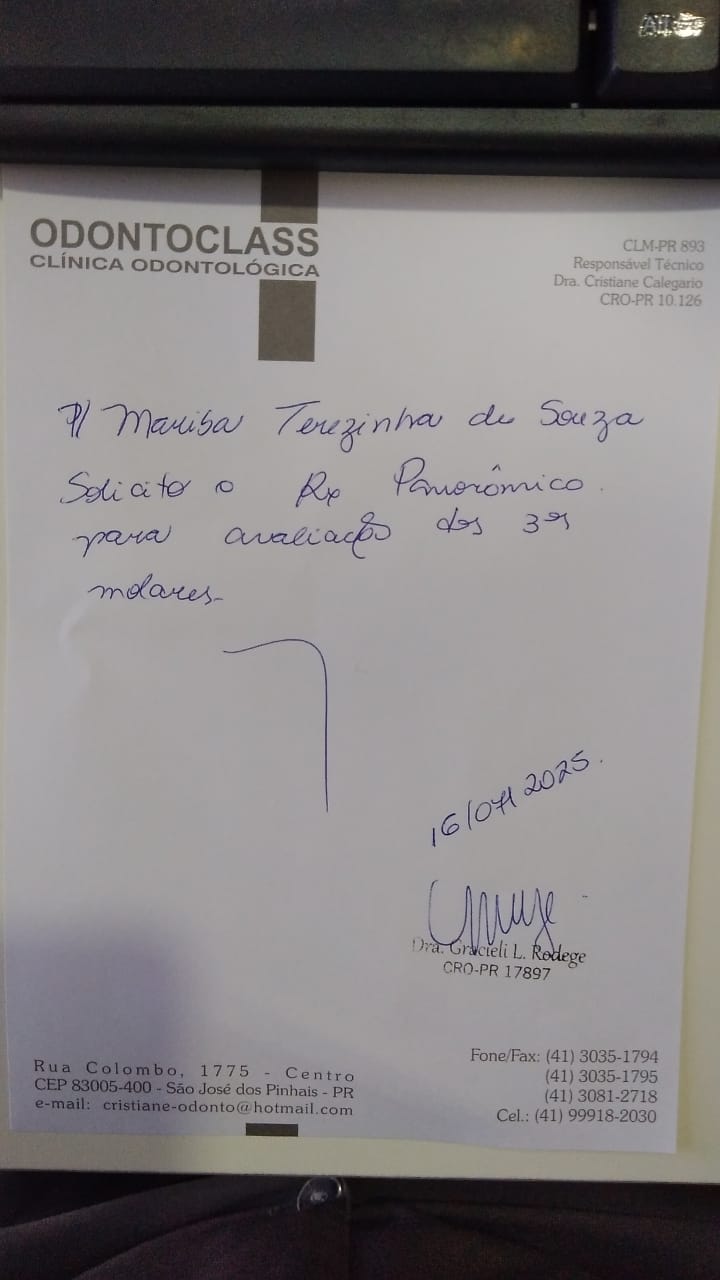 ODONTOCLASS
CLÍNICA ODONTOLÓGICA
CLM-PR 893
Responsável Técnico
Dra. Cristiane Calegario
CRO-PR 10.126
P/ Marisa Terezinha de Souza
Solicito o Rx Panorâmico.
para avaliação dos 3ºs
molares.
16/07/2025.
Dra. Gracieli L. Rodege
CRO-PR 17897
Rua Colombo, 1775 - Centro
CEP 83005-400 - São José dos Pinhais - PR
e-mail: cristiane-odonto@hotmail.com
Fone/Fax: (41) 3035-1794
(41) 3035-1795
(41) 3081-2718
Cel.: (41) 99918-2030